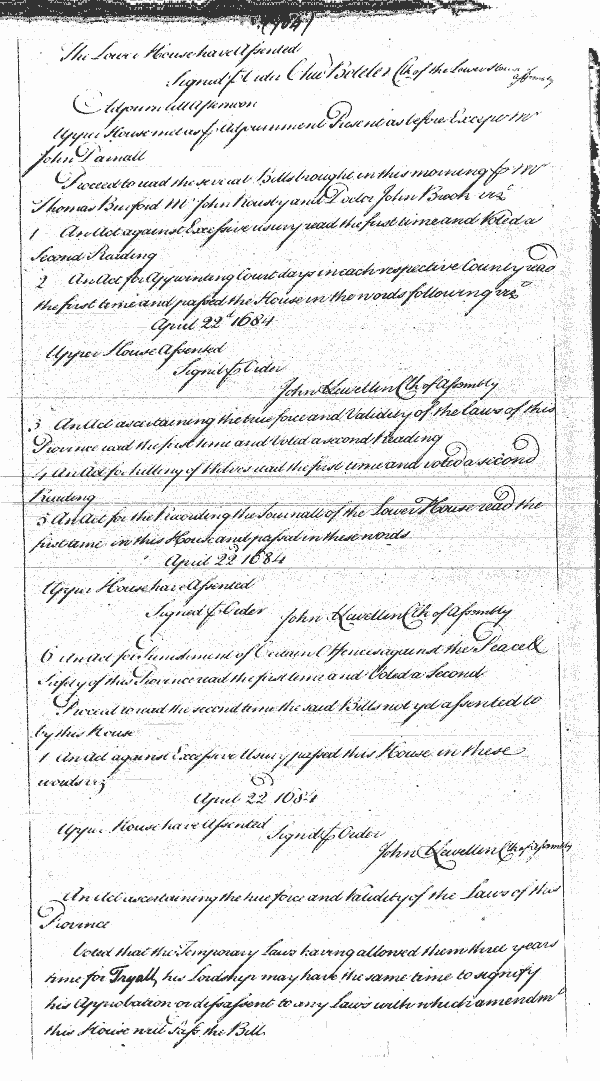 (784)
The Lower House have Assented
Signed p Order Cha: Boteler Clk of the Lower House Assembly
Adjourn till Afternoon
Upper House met as p Adjournment Present as before Except Mr
John Darnall
Proceed to read the several Bills brought in this morning p Mr
Thomas Burford Mr John Rousby and Doctor John Brook viz
1 An Act against Excessive usury read the first time and Voted a
Second Reading
2 An Act for Appointing Court days in each respective County read
the first time and passed the House in the words following viz
April 22d 1684
Upper House Assented
Signd p Order
John Llewellin Clk of Assembly
3 An Act ascertaining the true force and Validity of the Laws of this
Province read the first time and Voted a second Reading
4 An Act for killing of Wolves read the first time and voted a second
Reading
5 An Act for the Recording the Journall of the Lower House read the
first time in this House and passed in these words
April 22 1684
Upper House have Assented
Signed p Order John Llewellin Clk of Assembly
6 An Act for Punishment of Certain Offences against the Peace &
Safety of this Province read the first time and Voted a Second
Proceed to read the second time the said Bills not yet assented to
by this House
1 An Act against Excessive Usury passed this House in these
words viz
April 22 1684
Upper House have Assented Signd p Order
John Llewellin Clk of Assembly
An Act ascertaining the true force and Validity of the Laws of this
Province
Voted that the Temporary Laws having allowed them three years
time for Tryall, his Lordship may have the same time to signify
his Approbation or dissassent to any Laws with which amendmt
this House will pass the Bill